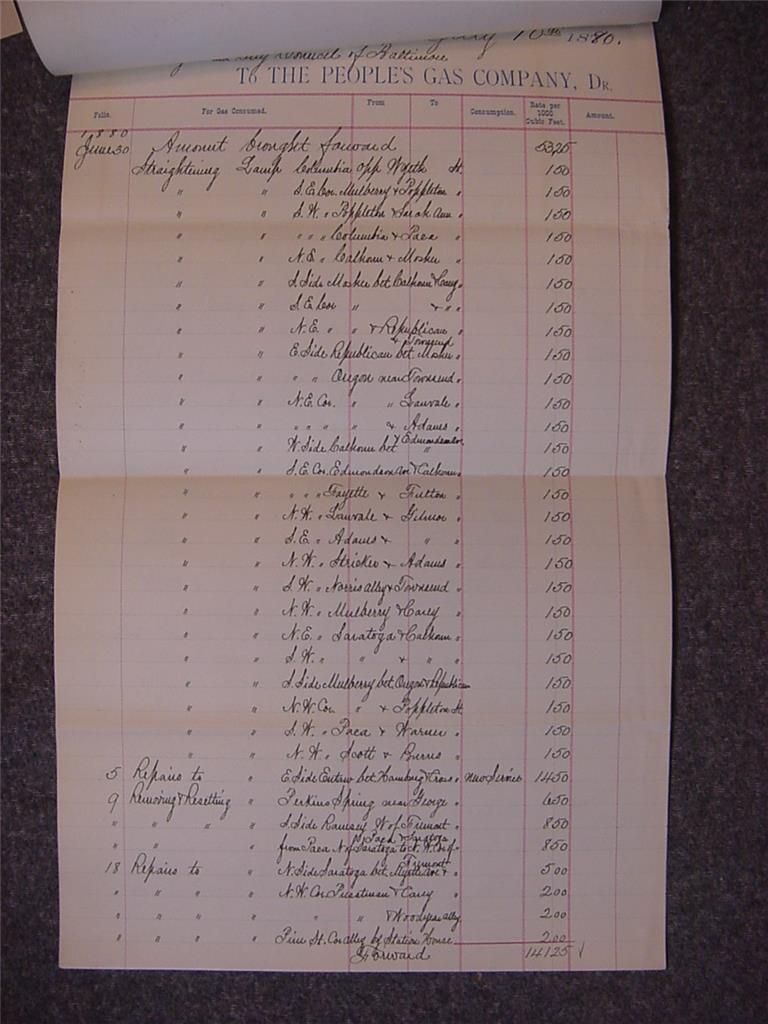 July 10th 1880.
City Council of Baltimore
To THE PEOPLE'S GAS COMPANY, Dr.
Folio. For Gas Consumed. From To Consumption. Rate per 1000 Cubic Feet. Amount.
1880
June 30 Amount brought forward 5325
Straightening Lamp Columbia opp Wyeth St. 150
" " S.E. Cor. Mulberry & Poppleton " 150
" " S.W. " Poppleton & Sarah Ann " 150
" " " " Columbia & Paca " 150
" " N.E. " Calhoun & Mosher " 150
" " S Side Mosher bet Calhoun & Carey " 150
" " S.E. Cor " & " " 150
" " N.E. " " & Republican " 150
" " E. Side Republican bet. Mosher & Townsend " 150
" " " " Oregon near Townsend " 150
" " N.E. Cor. " " Lanvale " 150
" " " " " & Adams " 150
" " W. Side Calhoun bet " & Edmondson Av. 150
" " S.E. Cor. Edmondson Av & Calhoun " 150
" " " " " Fayette & Fulton " 150
" " N.W. " Lanvale & Gilmor " 150
" " S.E. " Adams & " " 150
" " N.W. " Stricker & Adams " 150
" " S.W. " Norris alley & Townsend " 150
" " N.W. " Mulberry & Carey " 150
" " N.E. " Saratoga & Calhoun " 150
" " S.W. " " & " " 150
" " S. Side Mulberry bet. Oregon & Republican 150
" " N.W. Cor " & Poppleton St. 150
" " S.W. " Paca & Warner " 150
" " N.W. " Scott & Burris " 150
5 Repairs to " E. Side Eutaw bet Hamburg & Cross " new Service 1450
9 Removing & Resetting " Perkins Spring near George " 650
" " " " S. Side Ramsey W. of Fremont " 850
" " " from Paca N. of Saratoga to N.W. Cor of Paca & Saratoga " 850
18 Repairs to " N. Side Saratoga bet. Myrtle Av & Fremont " 500
" " " " N.W. Cor Presstman & Carey " 200
" " " " " " & Woodyear alley 200
" " " " Pine St. Cor alley by Station House 200
Forward 14125 √